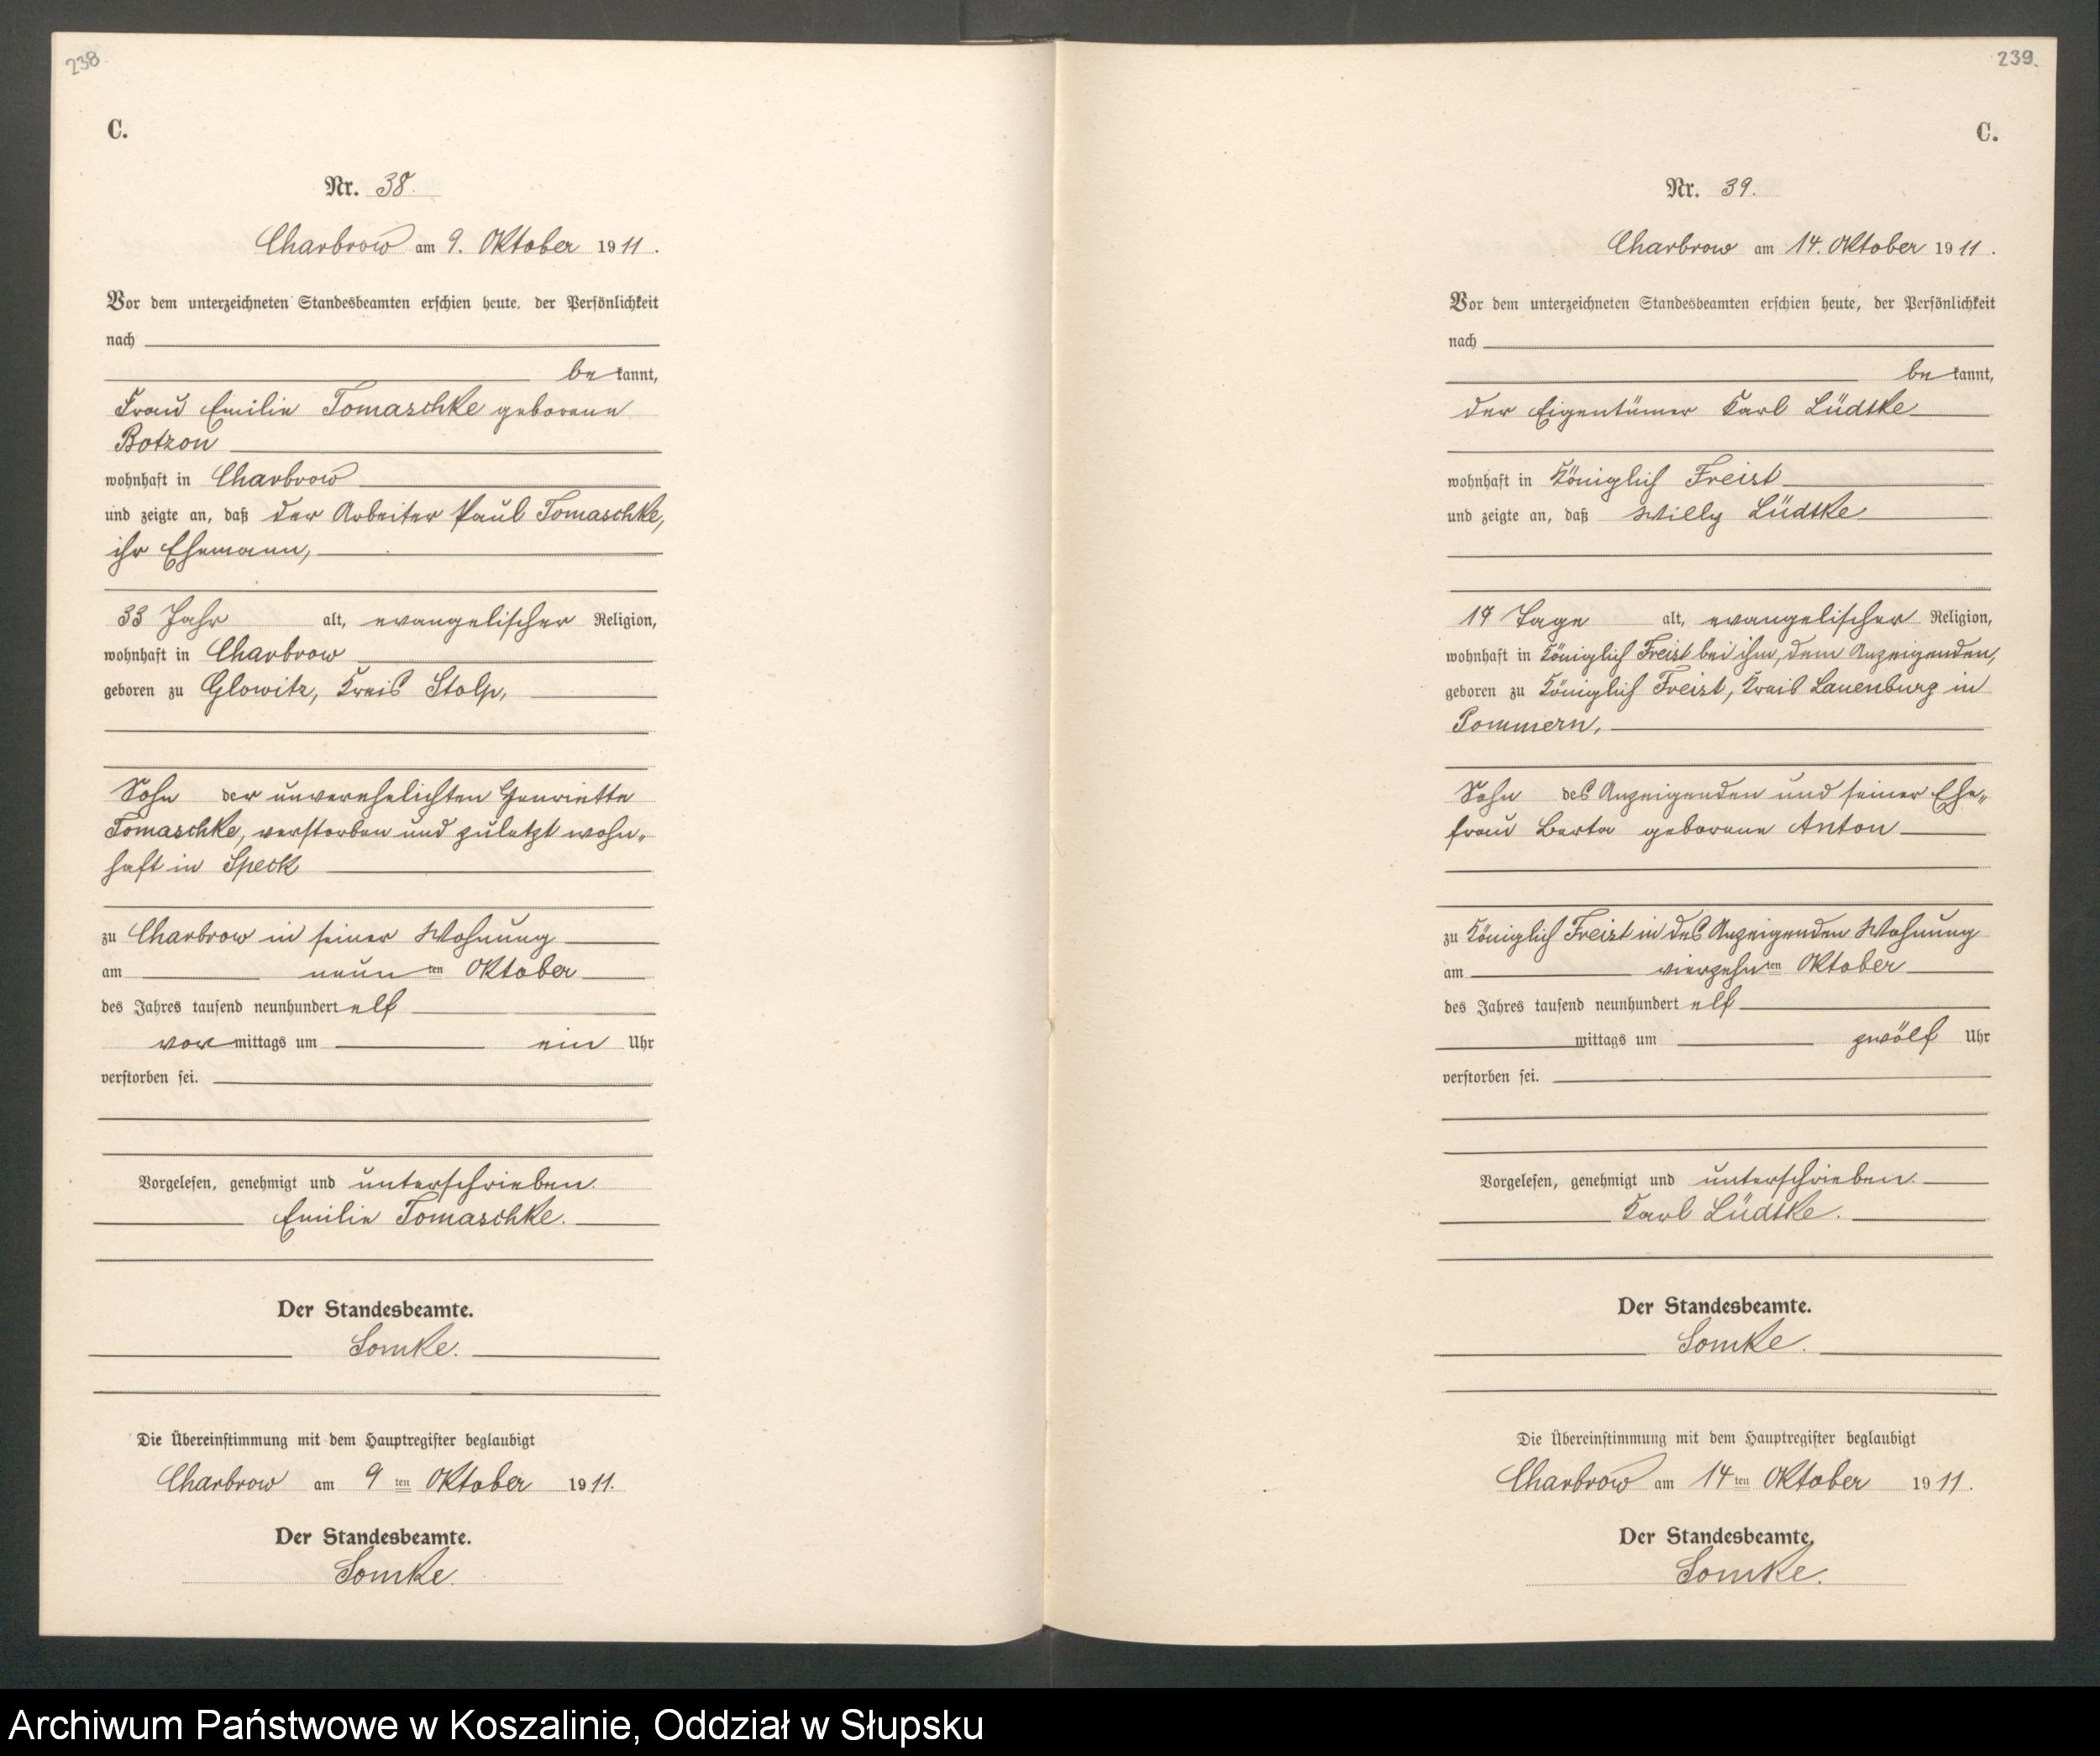 238
C.
Nr. 38.
Charbrow am 9. Oktober 1911.
Vor dem unterzeichneten Standesbeamten erschien heute, der Persönlichkeit
nach
bekannt,
Frau Emilie Tomaschke geborene
Botzon
wohnhaft in Charbrow
und zeigte an, daß der Arbeiter Paul Tomaschke,
ihr Ehemann,
33 Jahr alt, evangelischer Religion,
wohnhaft in Charbrow
geboren zu Glowitz, Kreis Stolp,
Sohn der unverehelichten Henriette
Tomaschke, verstorben und zuletzt wohn„
haft in Speck
zu Charbrow in seiner Wohnung
am neunten Oktober
des Jahres tausend neunhundert elf
vormittags um ein Uhr
verstorben sei.
Vorgelesen, genehmigt und unterschrieben.
Emilie Tomaschke.
Der Standesbeamte.
Somke.
Die Übereinstimmung mit dem Hauptregister beglaubigt
Charbrow am 9ten Oktober 1911.
Der Standesbeamte.
Somke.
239.
C.
Nr. 39.
Charbrow am 14. Oktober 1911.
Vor dem unterzeichneten Standesbeamten erschien heute, der Persönlichkeit
nach
bekannt,
der Eigentümer Karl Lüdtke
wohnhaft in Königlich Freist
und zeigte an, daß Willy Lüdtke
17 Tage alt, evangelischer Religion,
wohnhaft in Königlich Freist bei ihm, dem Anzeigenden,
geboren zu Königlich Freist, Kreis Lauenburg in
Pommern,
Sohn des Anzeigenden und seiner Ehe„
frau Berta geborene Anton
zu Königlich Freist in des Anzeigenden Wohnung
am vierzehnten Oktober
des Jahres tausend neunhundert elf
mittags um zwölf Uhr
verstorben sei.
Vorgelesen, genehmigt und unterschrieben.
Karl Lüdtke.
Der Standesbeamte.
Somke.
Die Übereinstimmung mit dem Hauptregister beglaubigt
Charbrow am 14ten Oktober 1911.
Der Standesbeamte.
Somke.
Archiwum Państwowe w Koszalinie, Oddział w Słupsku